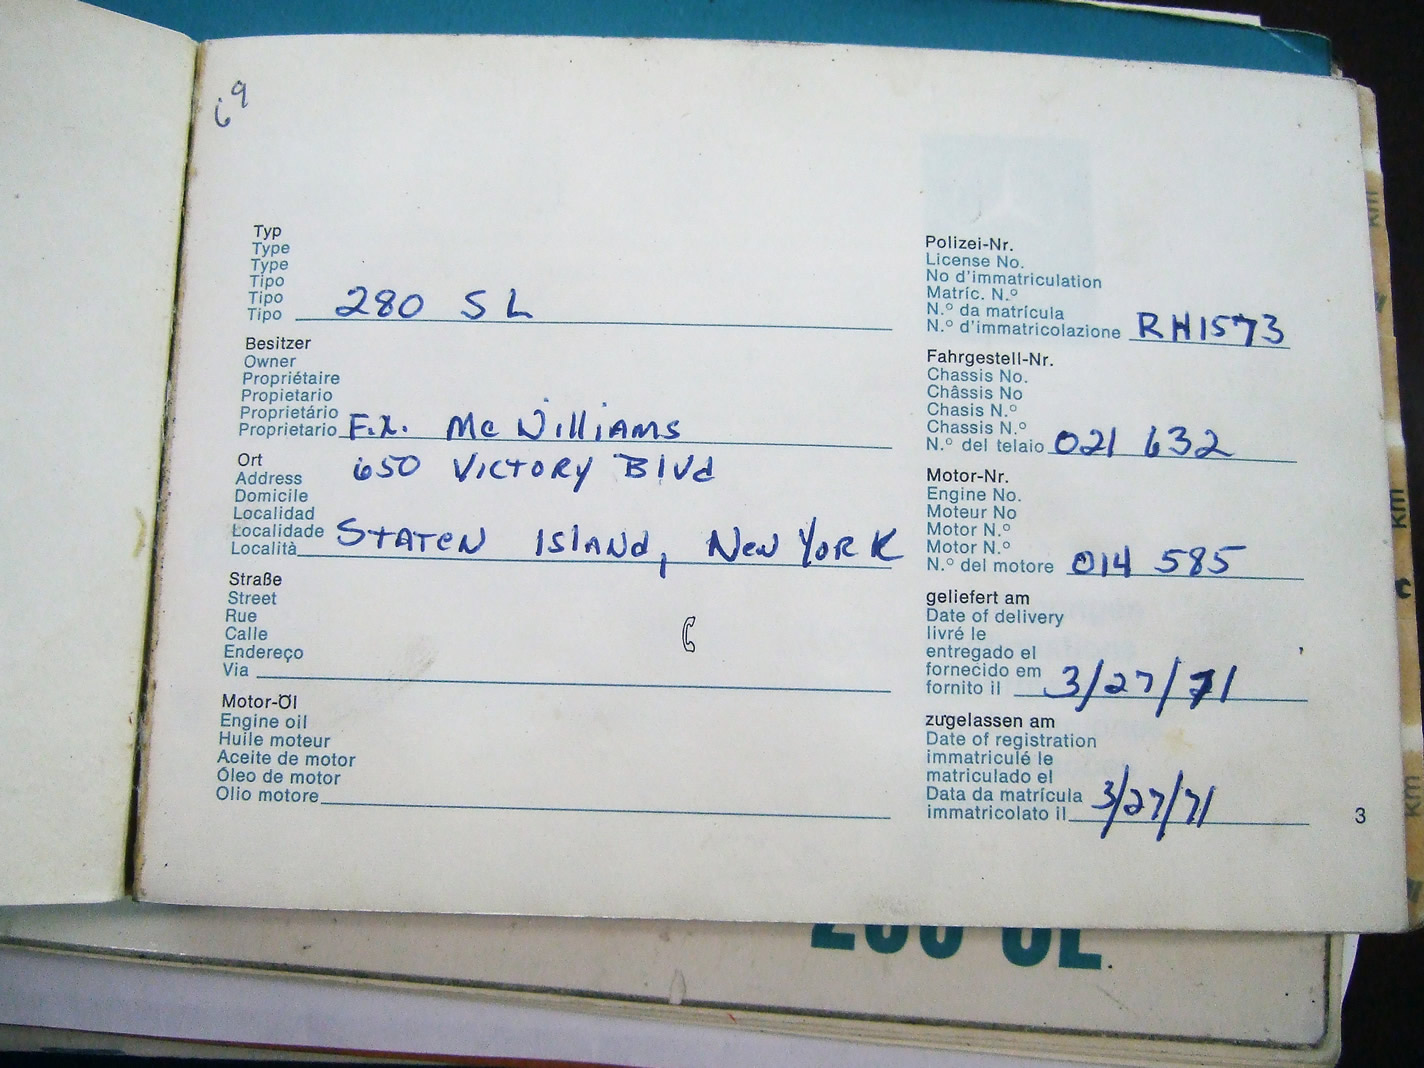 69
Typ
Type
Type
Tipo
Tipo
Tipo 280 SL
Besitzer
Owner
Propriétaire
Propietario
Proprietário
Proprietario F.X. McWilliams
Ort 650 Victory Blvd
Address
Domicile
Localidad
Localidade
Località Staten Island, New York
Straße
Street
Rue
Calle
Endereço
Via
Motor-Öl
Engine oil
Huile moteur
Aceite de motor
Óleo de motor
Olio motore
Polizei-Nr.
License No.
No d'immatriculation
Matríc. N.º
N.º da matrícula
N.º d'immatricolazione RH1573
Fahrgestell-Nr.
Chassis No.
Châssis No
Chasis N.º
Chassis N.º
N.º del telaio 021 632
Motor-Nr.
Engine No.
Moteur No
Motor N.º
Motor N.º
N.º del motore 014 585
geliefert am
Date of delivery
livré le
entregado el
fornecido em
fornito il 3/27/71
zugelassen am
Date of registration
immatriculé le
matriculado el
Data da matrícula
immatricolato il 3/27/71
3
km
km
km